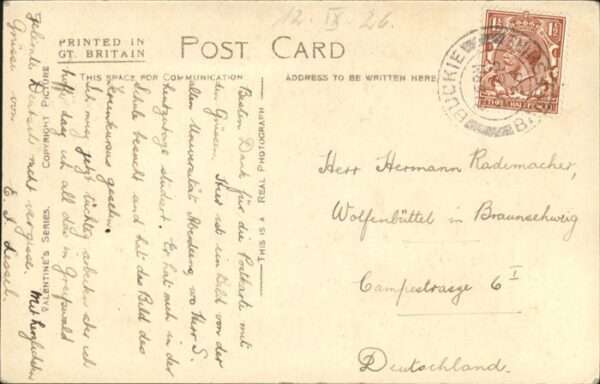 12. IX. 26.
PRINTED IN
GT. BRITAIN
POST CARD
THIS SPACE FOR COMMUNICATION
ADDRESS TO BE WRITTEN HERE
BUCKIE
THIS IS A REAL PHOTOGRAPH
VALENTINE'S SERIES. COPYRIGHT PICTURE
Besten Dank für die Postkarte mit
den Grüssen. Hier ist ein Bild von der
alten Universität Aberdeen, wo Herr S.
heutzutage studiert. Er hat mich in der
Schule besucht und hat das Bild des
gesehen.
Ich muss jetzt tüchtig arbeiten aber ich
hoffe dass ich all das in Greifswald
Deutsch nicht vergesse. Mit herzlichsten
Grüsse von
Herr Hermann Rademacher,
Wolfenbüttel in Braunschweig
Campestrasse 6 I
Deutschland.